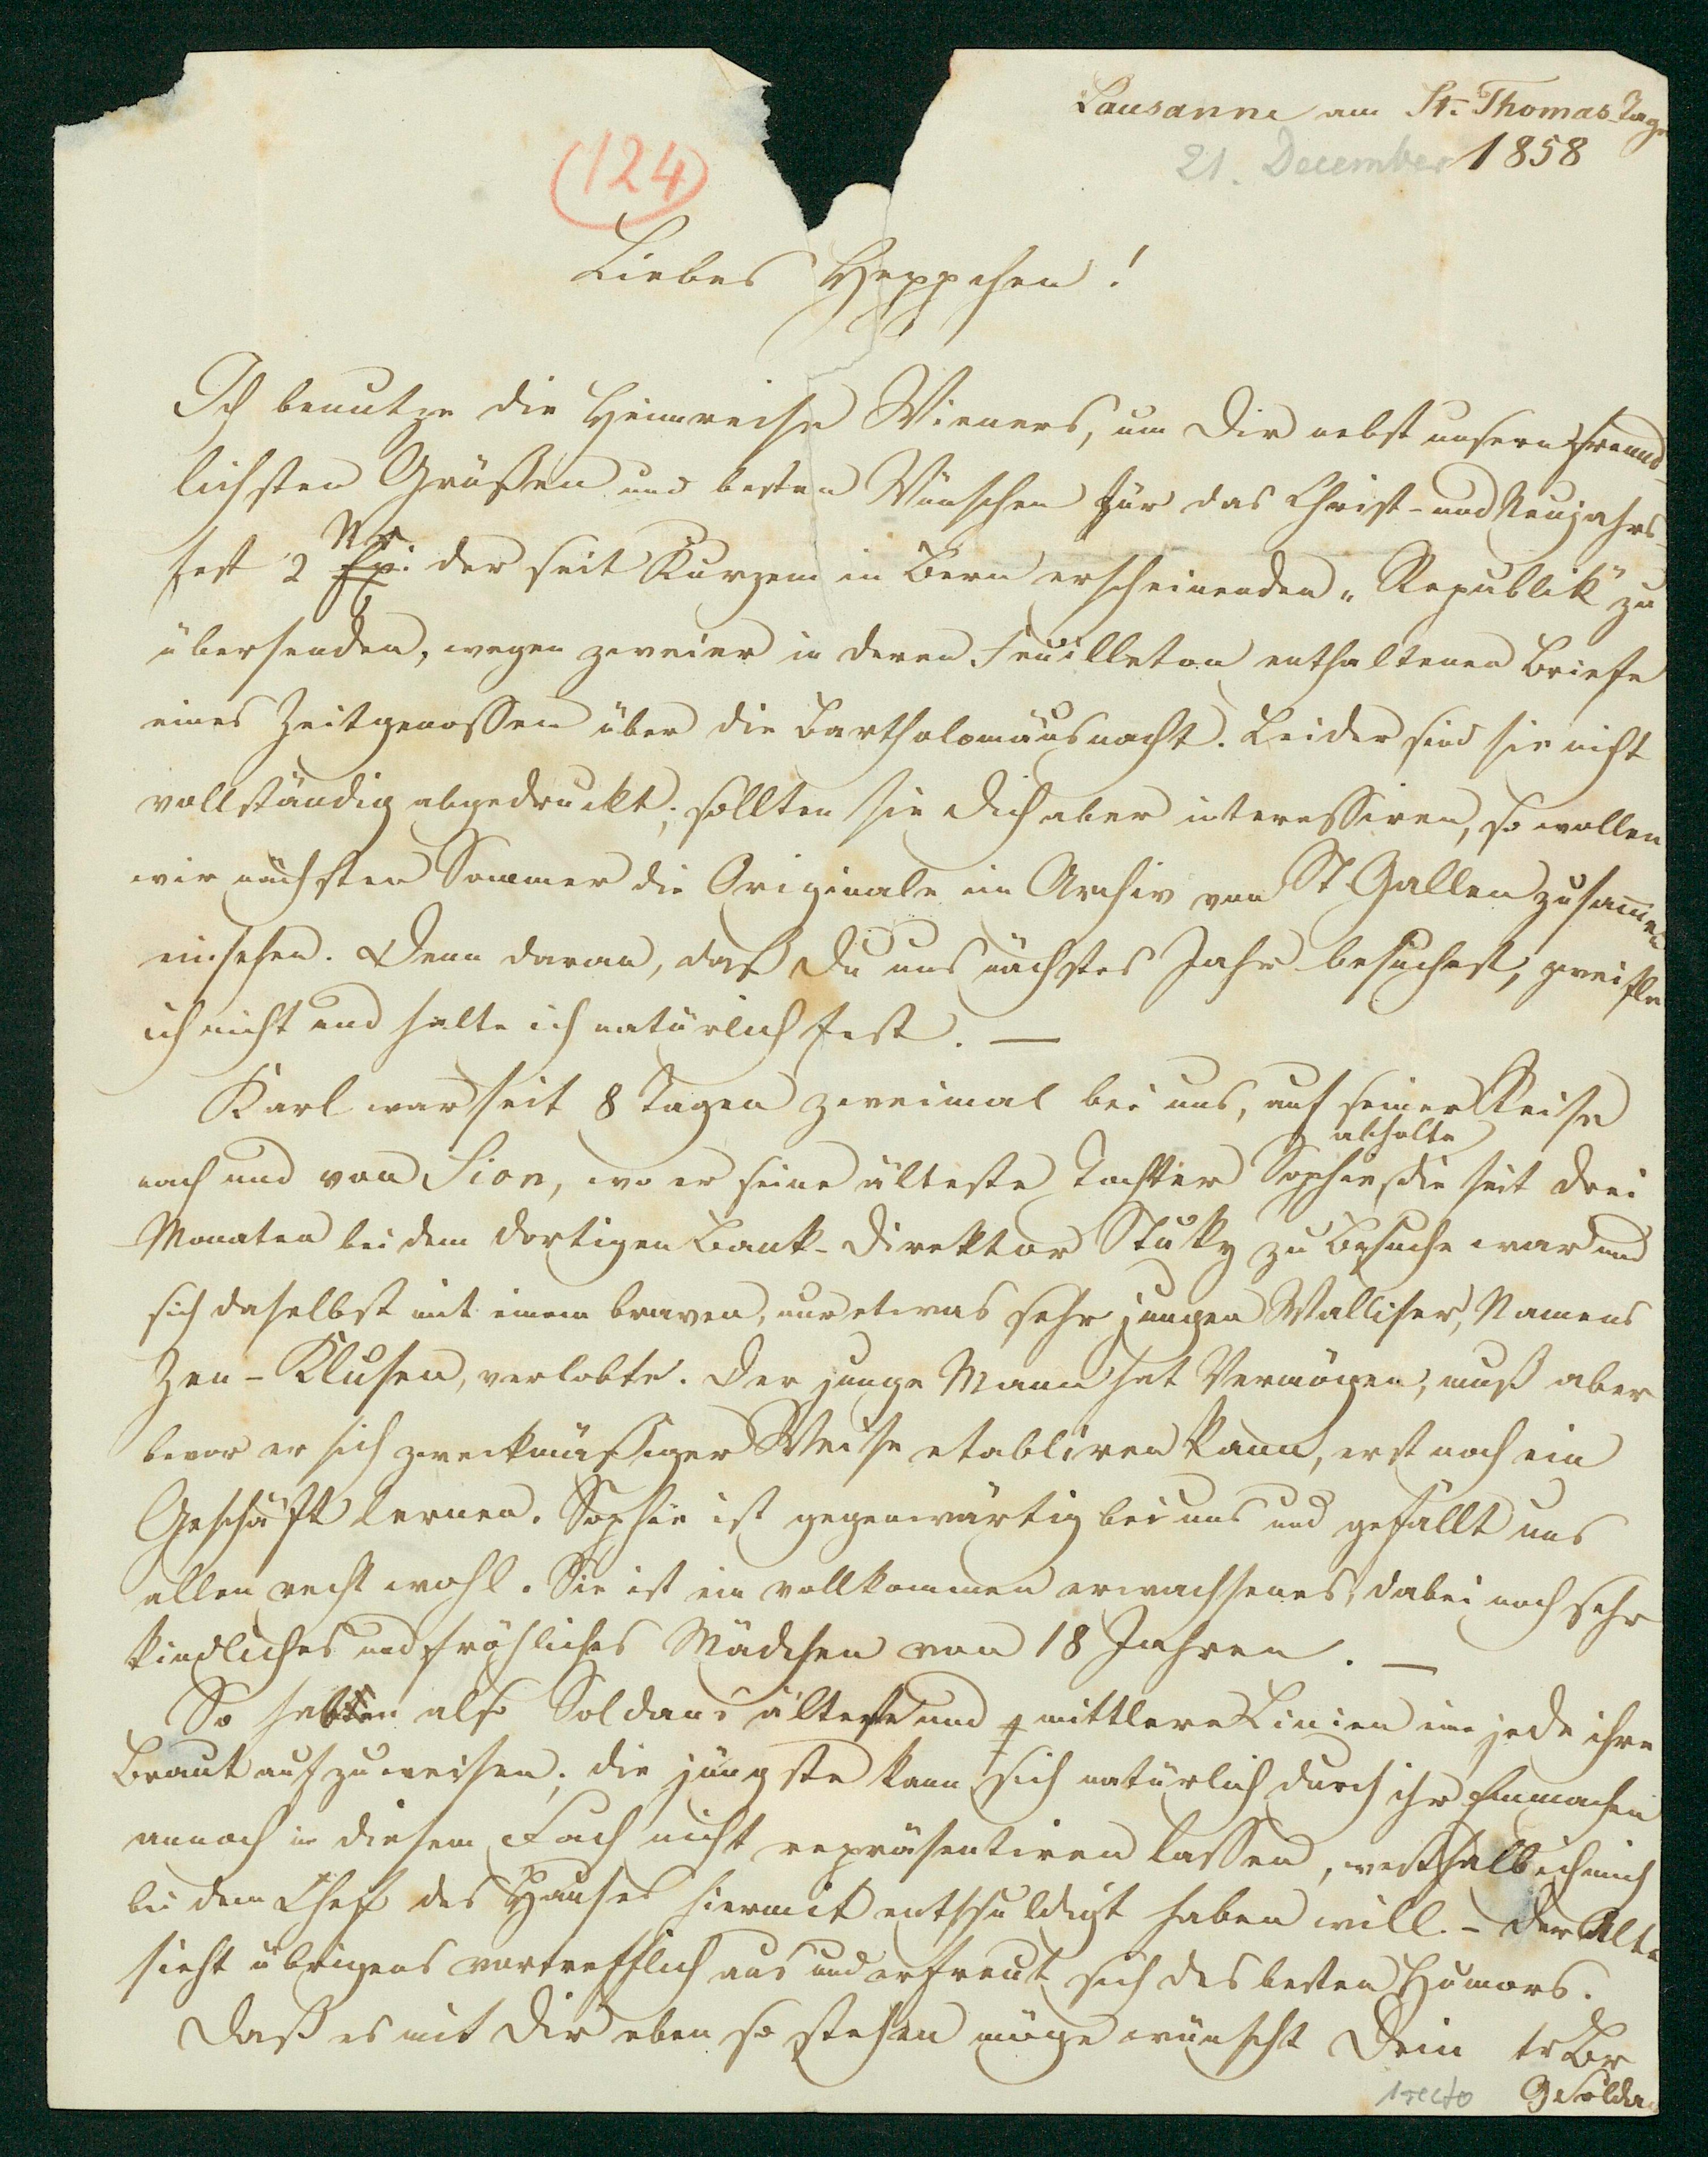 Lausanne am St. Thomas-Tage
21. December 1858
(124)
Liebes Heppchen!
Ich benutze die Heimreise Wieners, um Dir nebst unsern freund-
lichsten Grüßen und besten Wünschen für das Christ- und Neujahrs-
fest 2 Nr. der seit Kurzem in Bern erscheinenden „Republik" zu
übersenden, wegen zweier in deren Feuilleton enthaltenen Briefe
eines Zeitgenossen über die Bartholomäusnacht. Leider sind sie nicht
vollständig abgedruckt; sollten sie Dich aber interessiren, so wollen
wir nächsten Sommer die Originale im Archiv von St Gallen zusammen
einsehen. Denn daran, daß Du uns nächstes Jahr besuchst, zweifle
ich nicht und halte ich natürlich fest. —
Karl war seit 8 Tagen zweimal bei uns, auf seiner Reise
nach und von Sion, wo er seine älteste Tochter Sophie abholte, die seit drei
Monaten bei dem dortigen Bank-Direktor Stuky zu Besuche war und
sich daselbst mit einem braven, nur etwas sehr jungen Walliser, Namens
Zen-Klusen, verlobte. Der junge Mann hat Vermögen, muß aber
bevor er sich zweckmäßiger Weise etabliren kann, erst noch ein
Geschäft lernen. Sophie ist gegenwärtig bei uns und gefällt uns
allen recht wohl. Sie ist ein vollkommen erwachsenes, dabei noch sehr
kindliches und fröhliches Mädchen von 18 Jahren. —
So hätten also Soldans älteste und mittlere Linien eine jede ihre
Braut aufzuweisen; die jüngste kann sich natürlich durch ihr
annoch in diesem Fach nicht repräsentiren lassen, weßhalb ich mich
bei dem Chef des Hauses hiermit entschuldigt haben will. – Der Alte
sieht übrigens vortrefflich aus und erfreut sich des besten Humors.
Daß es mit Dir eben so stehen möge wünscht Dein tr Br
1 recto GSoldan